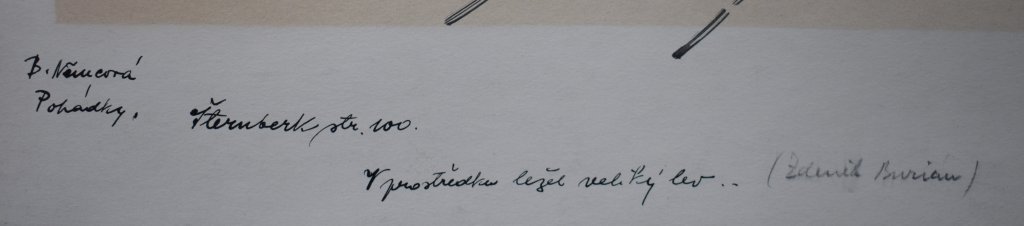 B. Němcová
Pohádky.
Šternberk str. 100.
V prostředku ležel veliký lev .. (Zdeněk Burian)